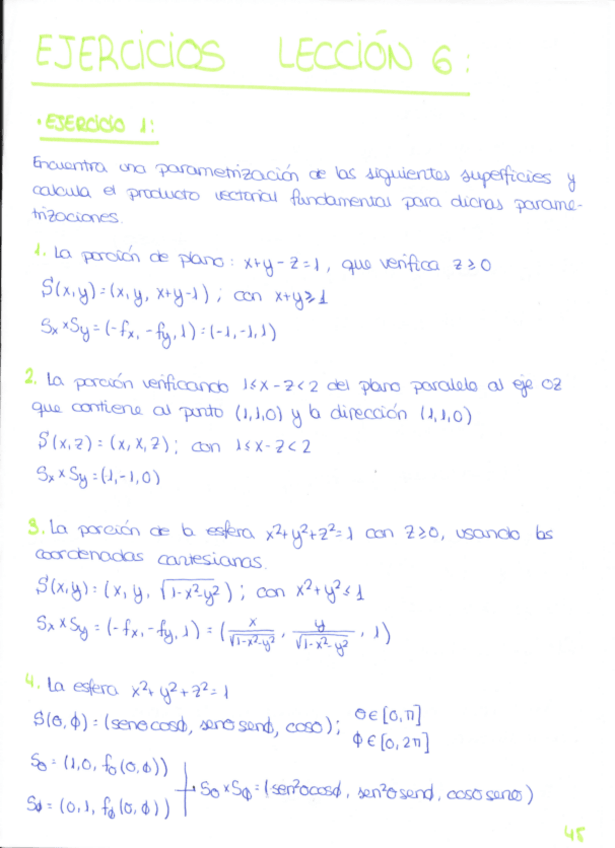 EJERCICIOS LECCIÓN 6:
• EJERCICIO 1:
Encuentra una parametrización de las siguientes superficies y
calcula el producto vectorial fundamental para dichas parame-
trizaciones.
1. La porción de plano: x+y-z=1, que verifica z≥0
S(x,y)=(x,y, x+y-1); con x+y≥1
Sx×Sy=(-fx,-fy,1)=(-1,-1,1)
2. La porción verificando 1≤x-z<2 del plano paralelo al eje OZ
que contiene al punto (1,1,0) y la dirección (1,1,0)
S(x,z)=(x,x,z); con 1≤x-z<2
Sx×Sy=(1,-1,0)
3. La porción de la esfera x²+y²+z²=1 con z≥0, usando las
coordenadas cartesianas.
S(x,y)=(x,y,√(1-x²-y²)); con x²+y²≤1
Sx×Sy=(-fx,-fy,1)=(x/√(1-x²-y²), y/√(1-x²-y²), 1)
4. La esfera x²+y²+z²=1
S(θ,ϕ)=(senθcosϕ, senθsenϕ, cosθ); θ∈[0,π]
ϕ∈[0,2π]
Sθ=(1,0,fθ(θ,ϕ))
Sϕ=(0,1,fϕ(θ,ϕ))
Sθ×Sϕ=(sen²θcosϕ, sen²θsenϕ, cosθsenθ)
45